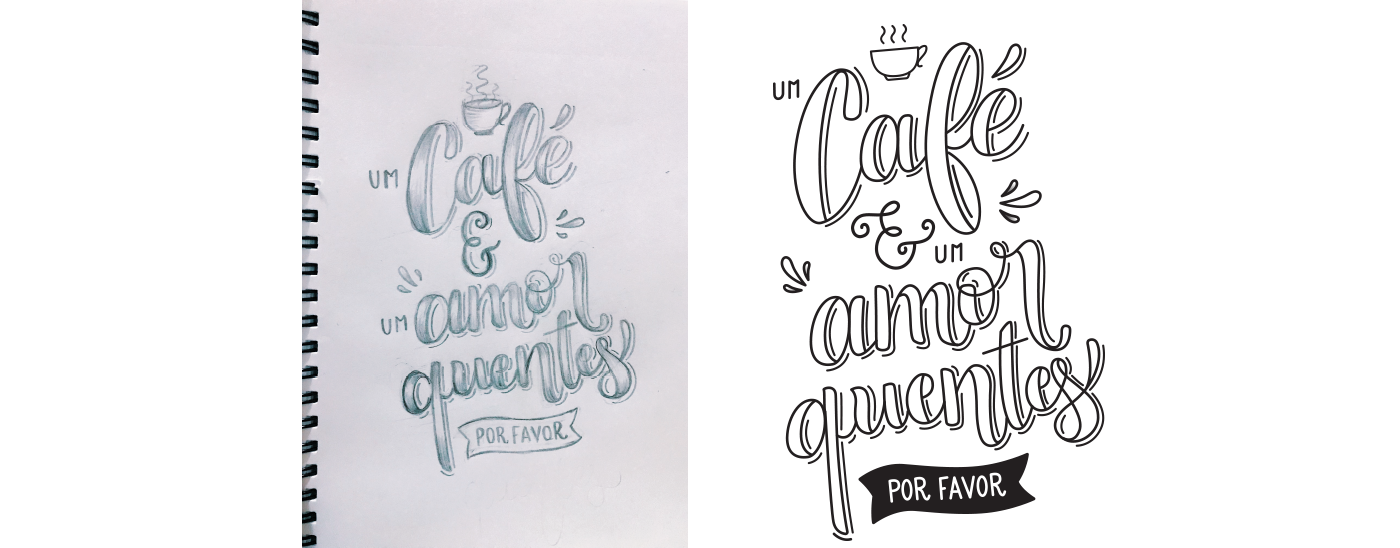 UM
Café
&
UM amor
quentes
POR FAVOR
UM
Café
& UM
amor
quentes
POR FAVOR